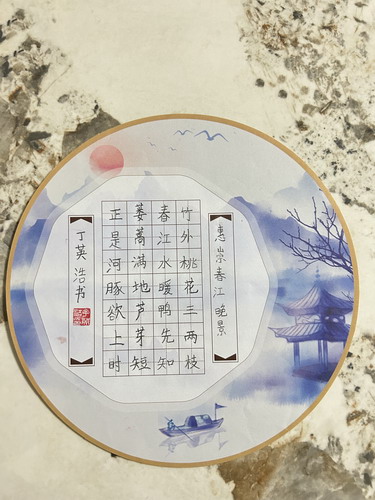 惠崇春江晚景
竹外桃花三两枝
春江水暖鸭先知
蒌蒿满地芦芽短
正是河豚欲上时
丁英浩书